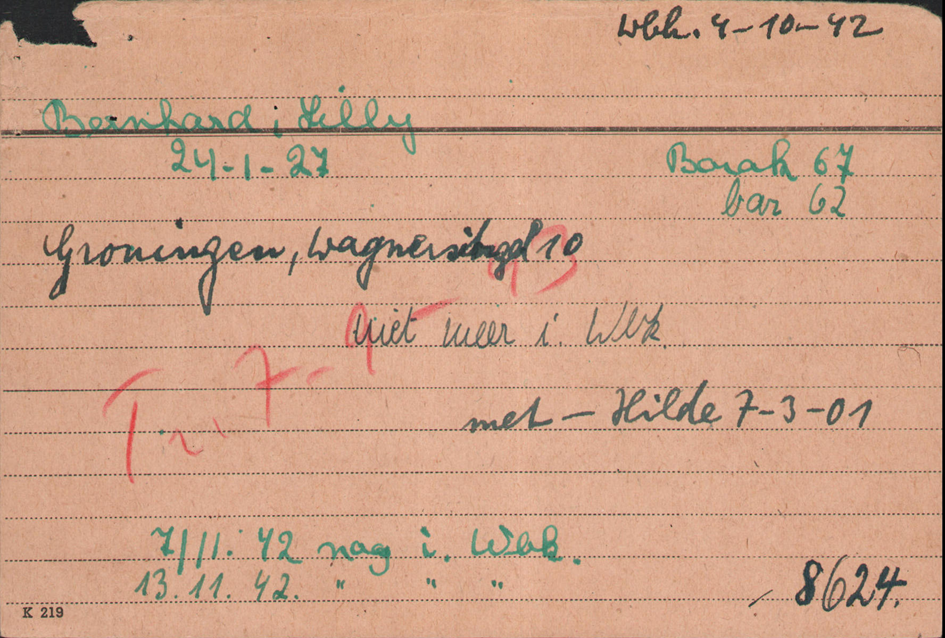 Wbk. 4-10-42
Bernhard, Lilly
24-1-27 Barak 67
bar 62
Groningen, Wagnersingel 10
niet meer i. Wbk.
Tr. 7-9-43
met - Hilde 7-3-01
7/11. 42 nog i. Wbk.
13.11.42. " " "
8624.
K 219